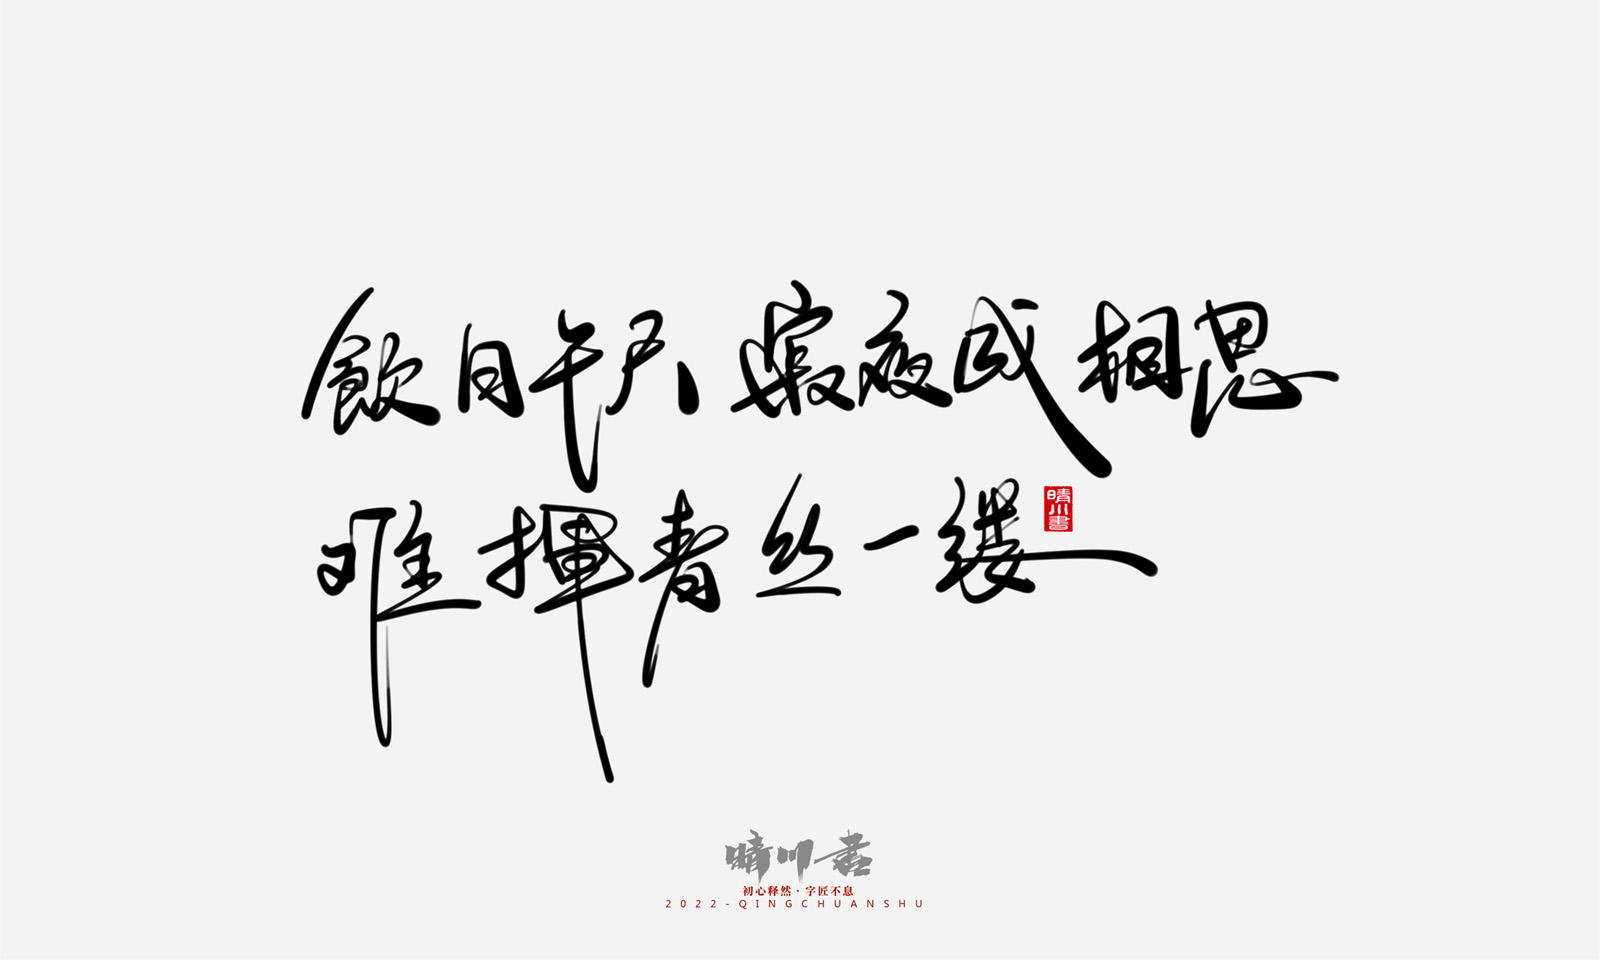 飲日千天 寂夜成相思
难揮青丝一缕
晴川書
晴川書
初心释然·字匠不息
2022-QINGCHUANSHU